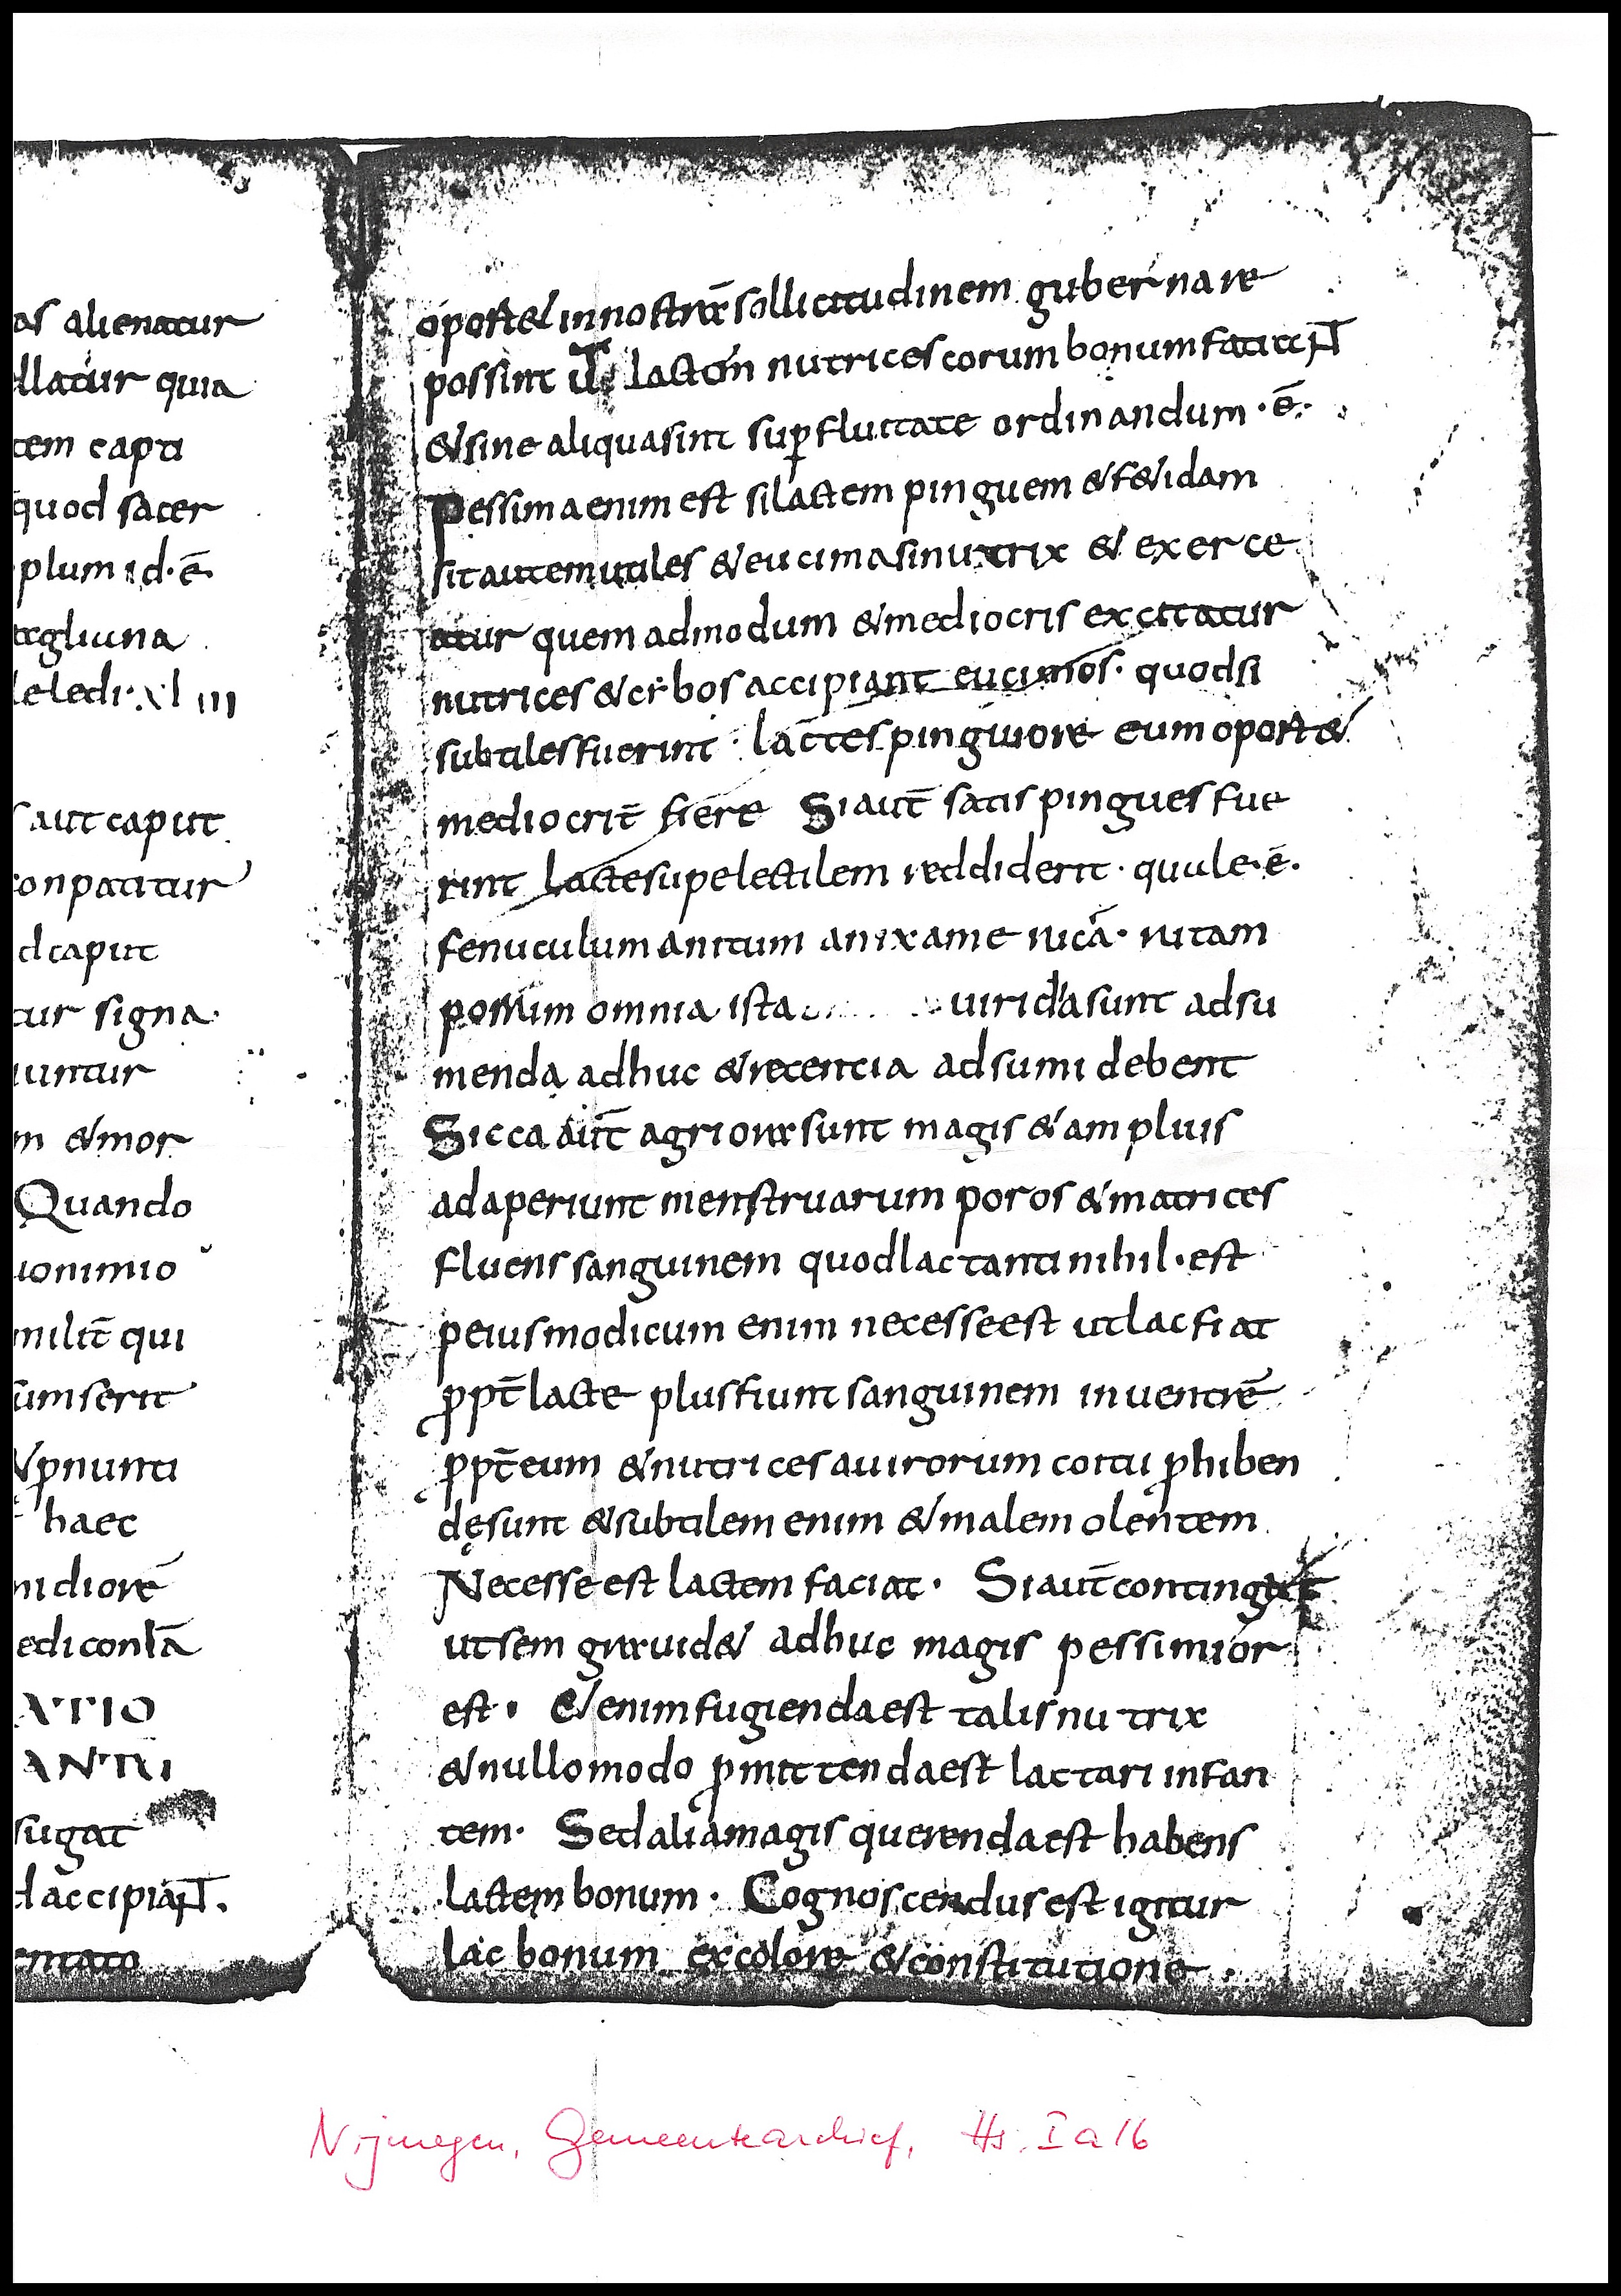 as alienatur
llatur quia
tem capti
quod sacer
plum id·ē
argliuna
leledi·xl iii
s aut caput
conpatitur
d caput
tur signa·
uuntur
m &mor
Quando
uonimio
milit̄ qui
sumserit
&pnunti
haec
nidiorē
edicontā
ATIO
ANTU
sugat
d accipiaN̄T.
entato
oport& in nostra sollicitudinem gubernare
possint ut lactem nutrices eorum bonum faciaNT
& sine aliqua sint sup̄fluitate ordinandum·ē·
Pessima enim est si lactem pinguem & f&idam
sit autem utiles & eucima si nutrix & exerce
atur quem admodum & mediocris excitatur
nutrices & cibos accipiant eucimos· quodsi
subtiles fuerint· lactes pinguiore eum oport&
mediocrit̄ fiere Si aut̄ satis pingues fue
rint lacte supelectilem reddiderit· quule·ē·
fenuculum anitum anixame nicā· nitam
possim omnia ista uirida sunt adsu
menda adhuc & recentia adsumi debent
Sicca aut̄ agriora sunt magis & ampluis
adaperiunt menstruarum poros & matrices
fluens sanguinem quod lactanti nihil·est
peius modicum enim necesse est ut lac fiat
ꝓpt̄ lacte plus fiunt sanguinem in uentrē
ꝓpt̄ eum & nutrices a uirorum coitu ꝓhiben
dę sunt & subtilem enim & malem olentem
Necesse est lactem faciat· Si aut̄ contingat
ut sem grauid& adhuc magis pessimior
est· & enim fugienda est talis nutrix
& nullo modo p̄mittenda est lactari infan
tem· Sed alia magis querenda est habens
lactem bonum· Cognoscendus est igitur
lac bonum ex colore & constitutione·
Nijmegen, Gemeentearchief, Hs. I a 16